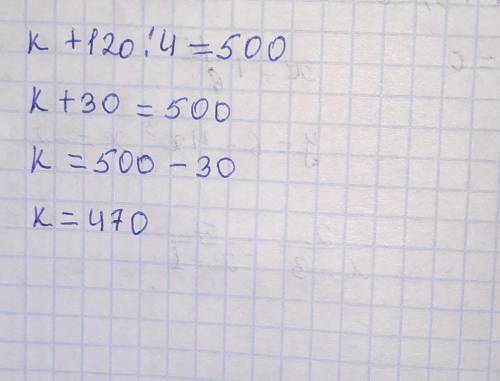 к +120:4=500
к+30 =500
к =500 -30
к=470